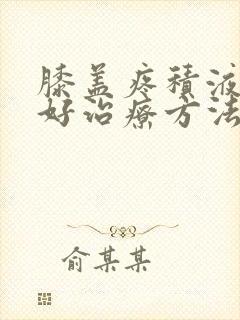 膝盖疼積液
好治療方法
俞某某